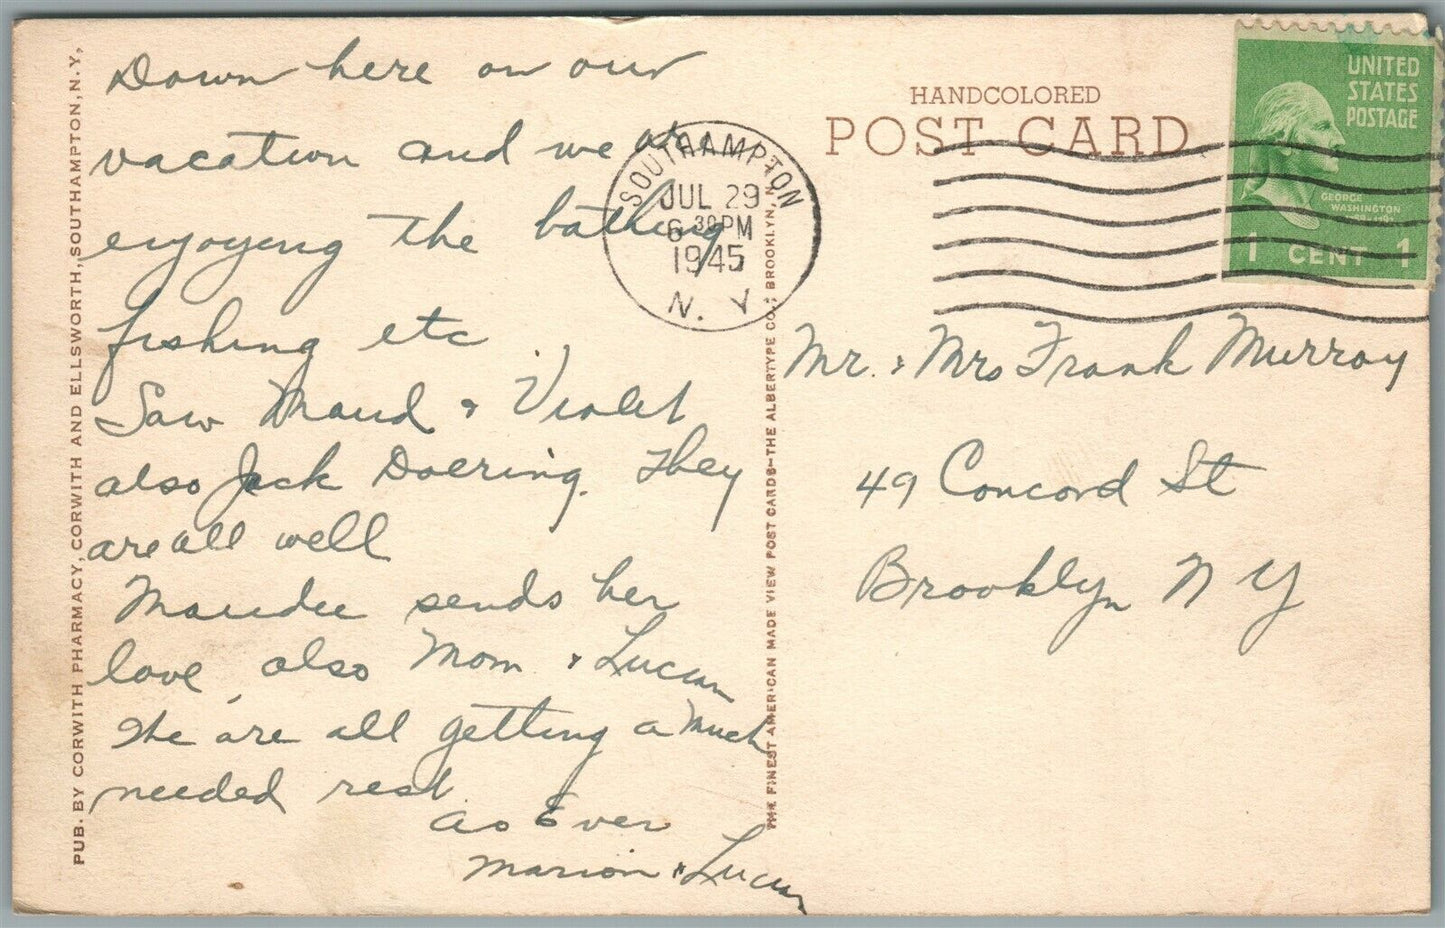 PUB. BY CORWITH PHARMACY, CORWITH AND ELLSWORTH, SOUTHAMPTON, N.Y.
Down here on our
vacation and we are
enjoying the bathing
fishing etc.
Saw Maud & Violet
also Jack Doering. They
are all well
Maudee sends her
love, also Mom & Lucian
We are all getting a much
needed rest.
As Ever
Marion & Lucian
THE FINEST AMERICAN MADE VIEW POST CARDS—THE ALBERTYPE CO., BROOKLYN, N.Y.
HANDCOLORED
POST CARD
SOUTHAMPTON
JUL 29
6 30 PM
1945
N. Y.
UNITED
STATES
POSTAGE
GEORGE
WASHINGTON
1 CENT 1
Mr. & Mrs Frank Murray
49 Concord St
Brooklyn N Y